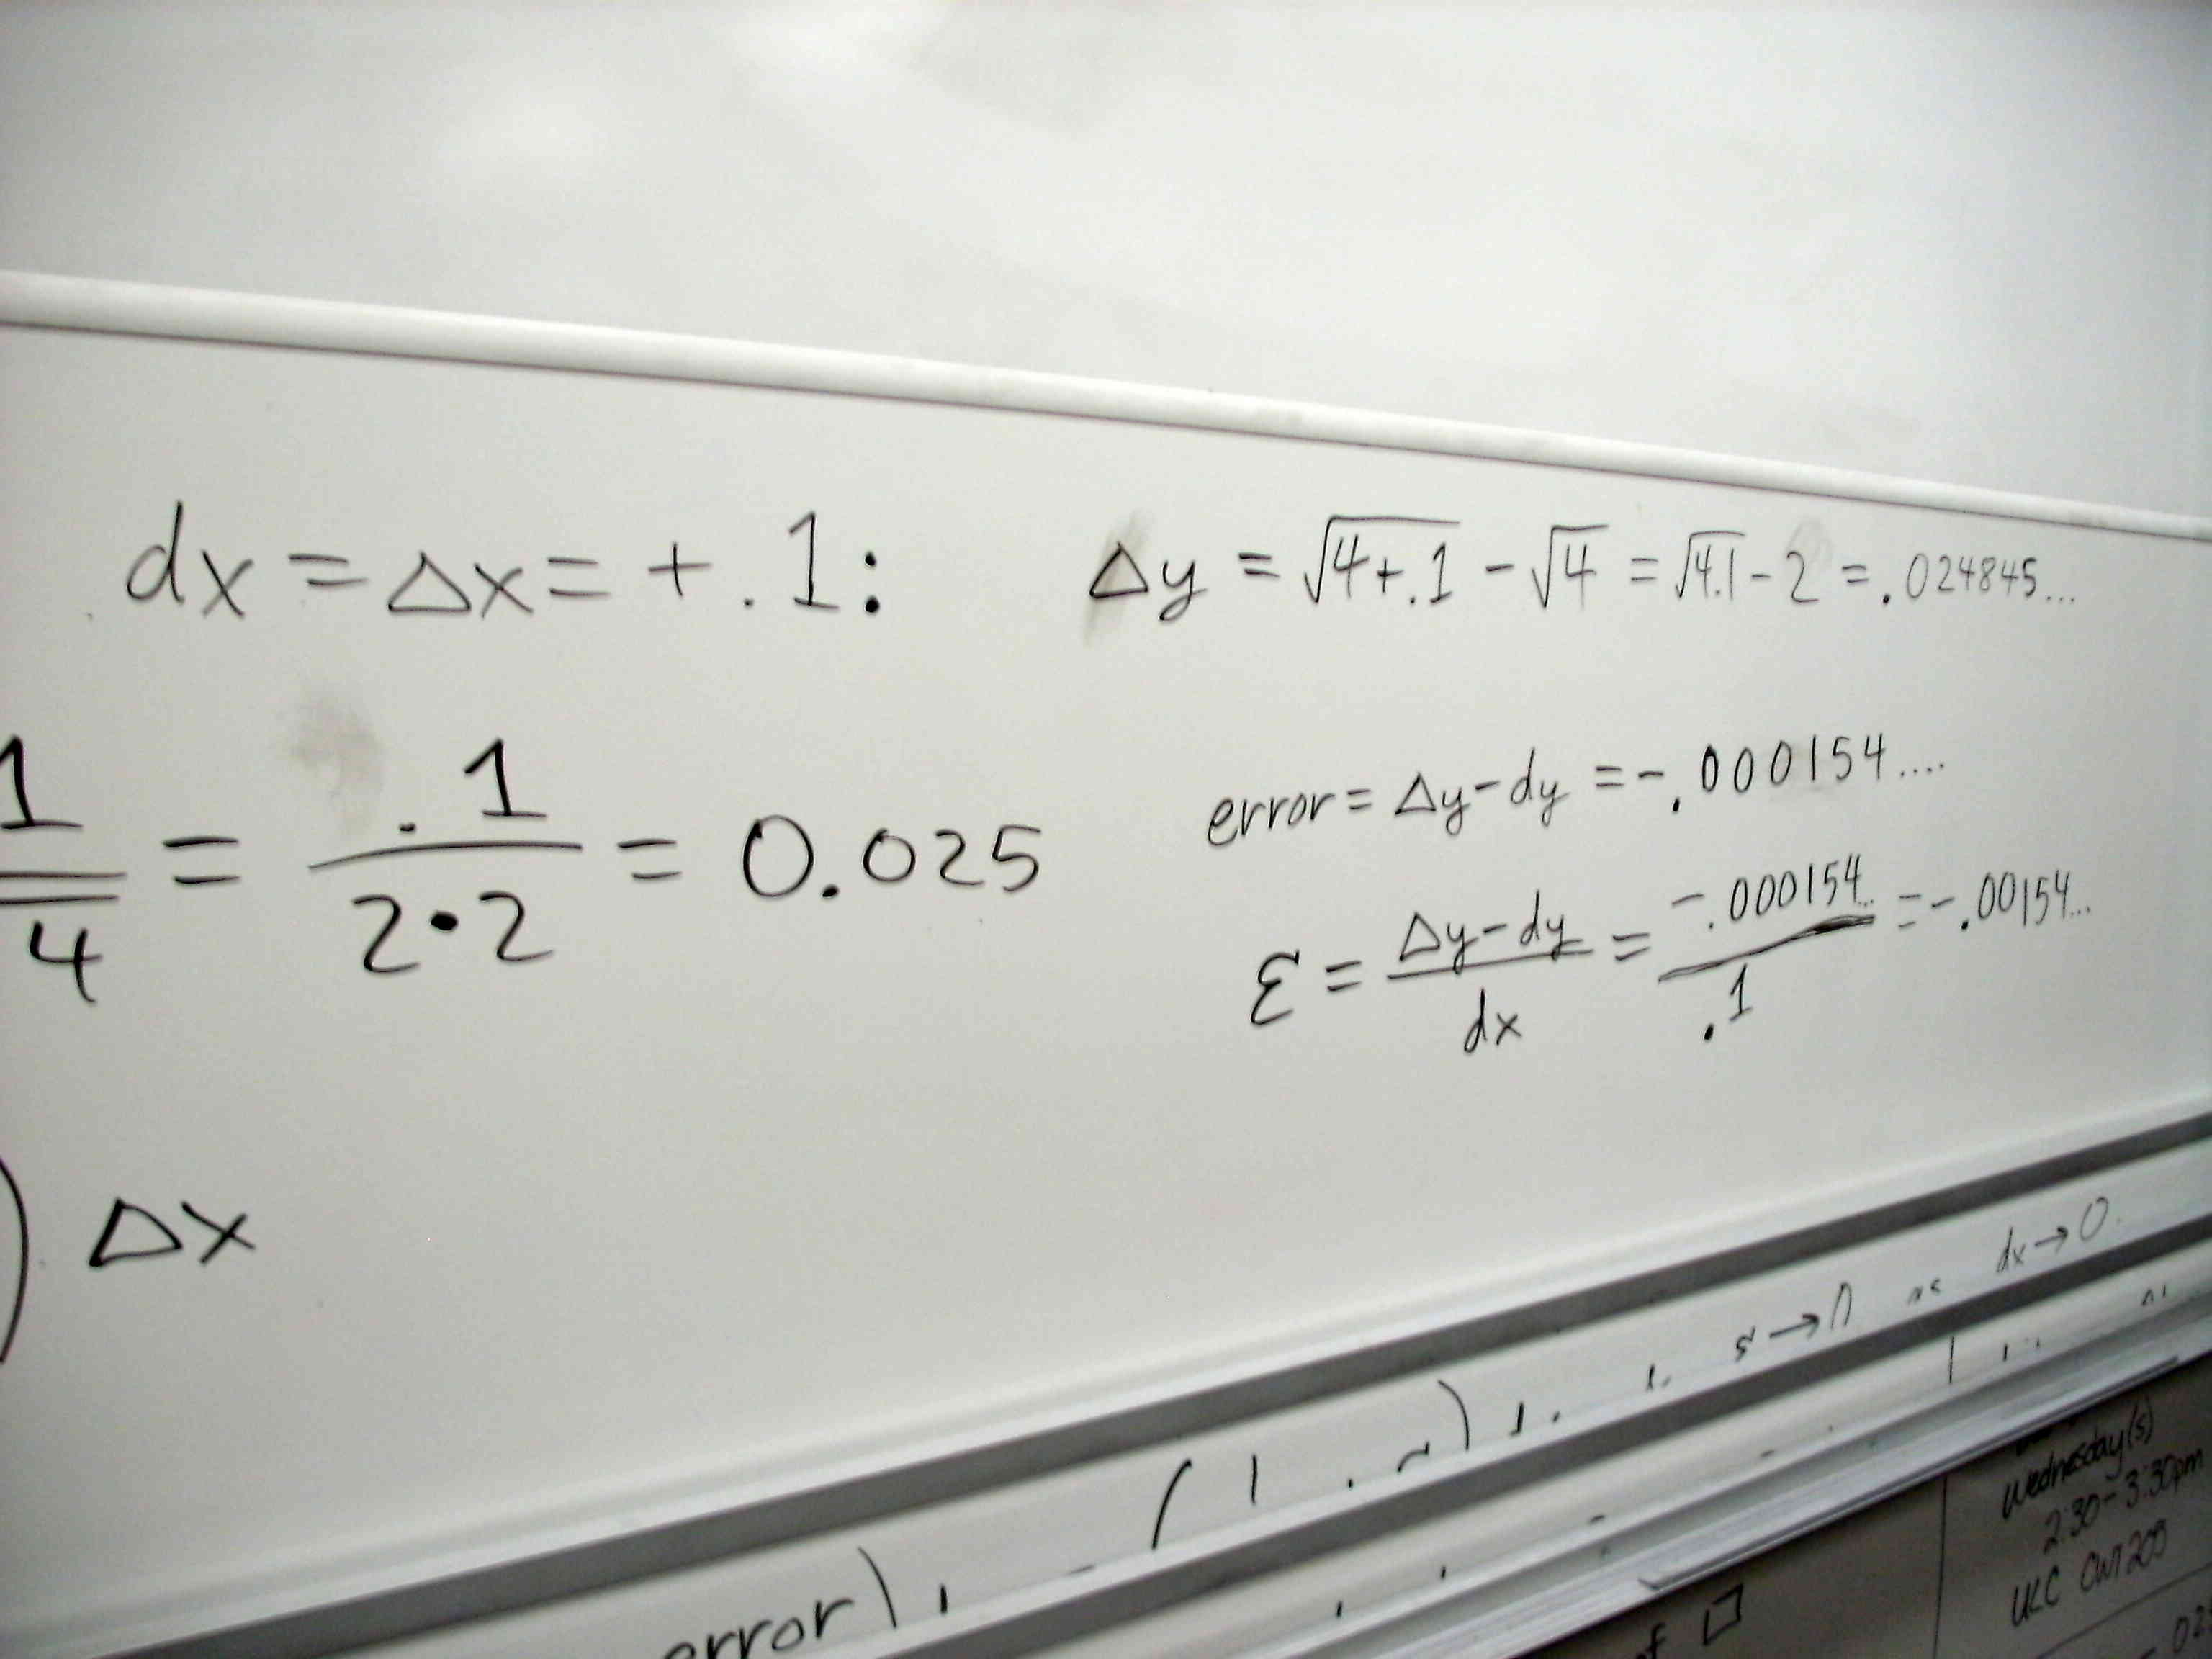 dx = Δx = +.1: Δy = √4+.1 - √4 = √4.1 - 2 = .024845...
1/4 = .1/2•2 = 0.025
error = Δy - dy = -.000154....
ε = Δy-dy/dx = -.000154.../.1 = -.00154...
) Δx
dx→0
error)
of □
Wednesday(s)
2:30-3:30pm